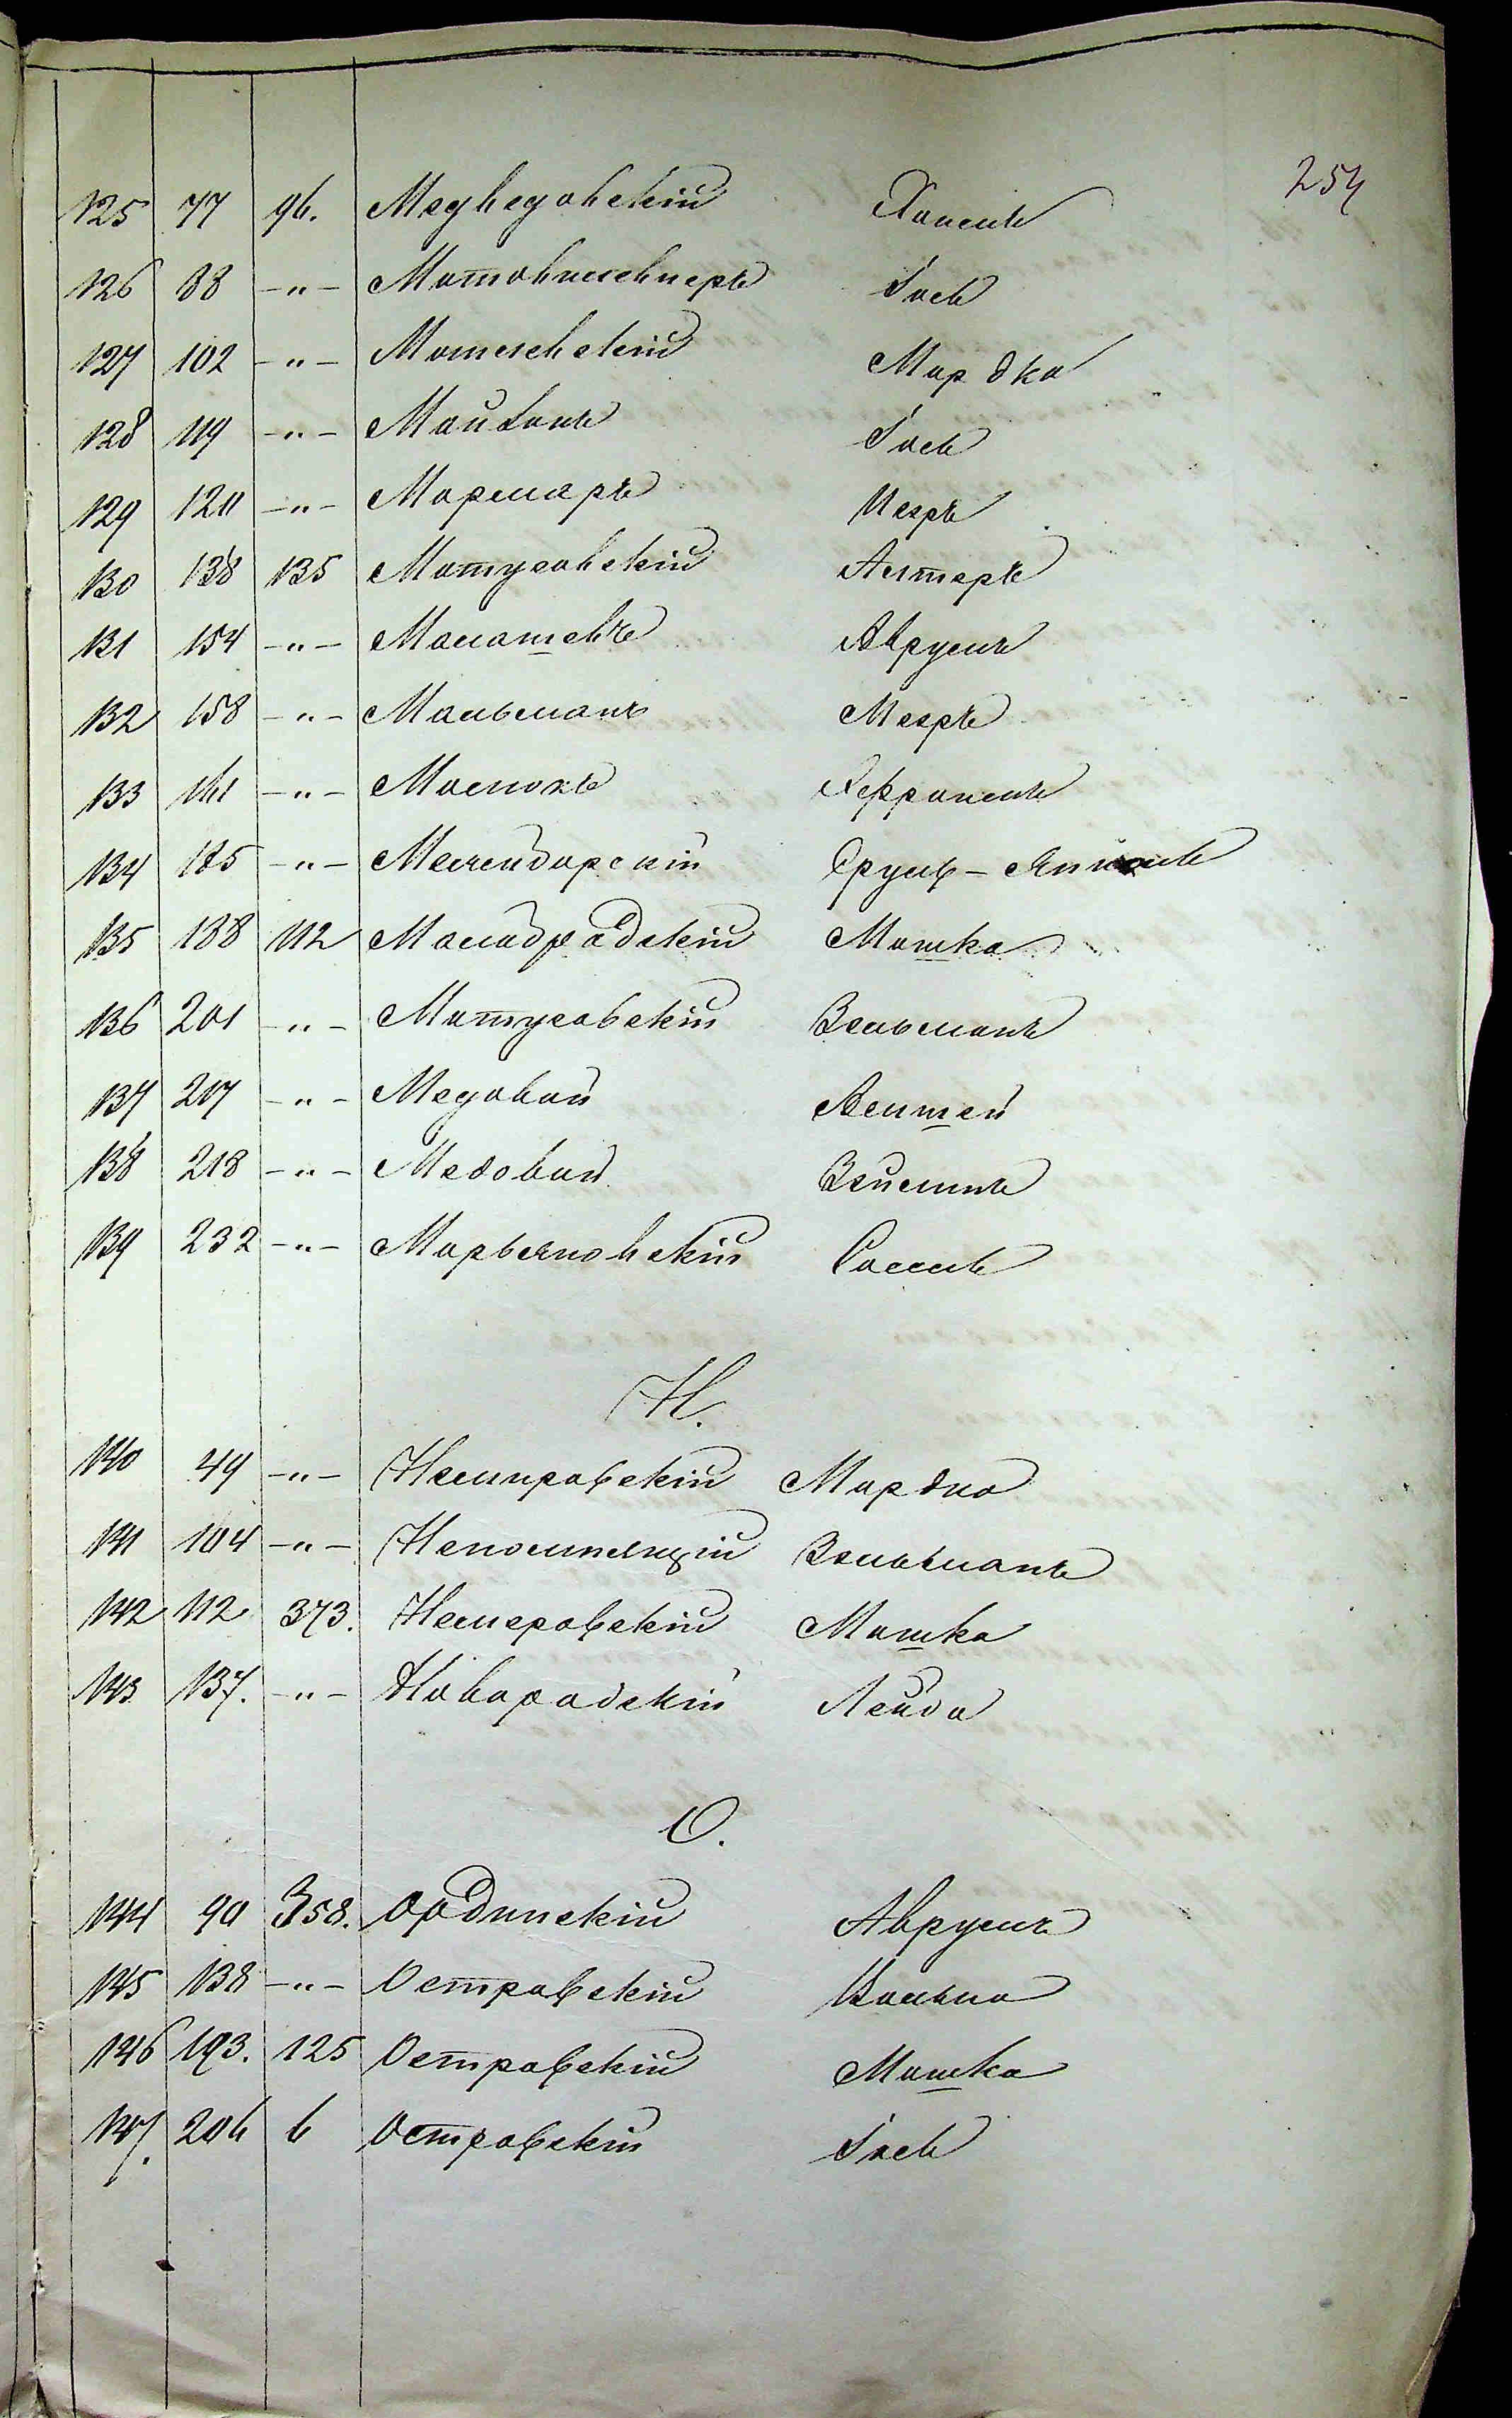 254
125 77 96. Медведовскій Хаимъ
126 88 -"- Матовилевкеръ Іось
127 102 -"- Мотелевскій Мордко
128 119 -"- Майданъ Іось
129 120 -"- Мармаръ Мееръ
130 138 135 Матусовскій Алтеръ
131 154 -"- Малашевъ Аврумъ
132 158 -"- Мальманъ Мееръ
133 161 -"- Маслюкъ Ефроимъ
134 185 -"- Межендорскій Сруль-
135 188 112 Малоградскій Мошко
136 201 -"- Матусовскій Зельманъ
137 217 -"- Медовой
138 218 -"- Медовой Зейликъ
139 232 -"- Марьяновскій
Н.
140 49 -"- Немировскій Мордко
141 104 -"- Непомнящій Зельманъ
142 112 373. Немеровскій Мошко
143 137. -"- Новорадскій Лейба
О.
144 90 358. Ордынскій Аврумъ
145 138 -"- Островскій Волько
146 193. 125 Островскій Мошко
147. 206 6 Островскій Іось